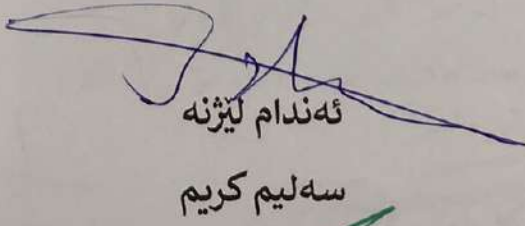 ئەندام لێژنە
سەلیم کریم